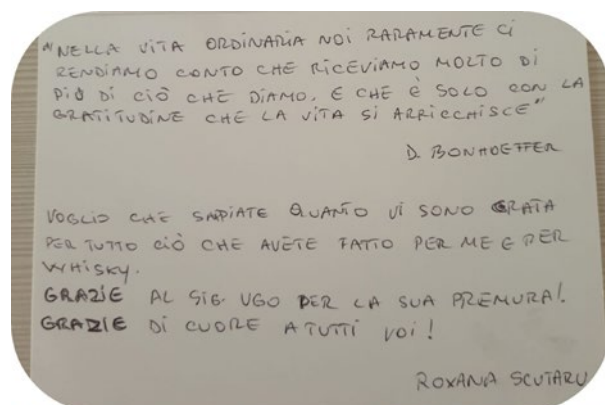 "NELLA VITA ORDINARIA NOI RARAMENTE CI
RENDIAMO CONTO CHE RICEVIAMO MOLTO DI
PIÙ DI CIÒ CHE DIAMO, E CHE È SOLO CON LA
GRATITUDINE CHE LA VITA SI ARRICCHISCE"
D. BONHOEFFER
VOGLIO CHE SAPPIATE QUANTO VI SONO GRATA
PER TUTTO CIÒ CHE AVETE FATTO PER ME E PER
WHISKY.
GRAZIE AL SIG. UGO PER LA SUA PREMURA!
GRAZIE DI CUORE A TUTTI VOI!
ROXANA SCUTARU